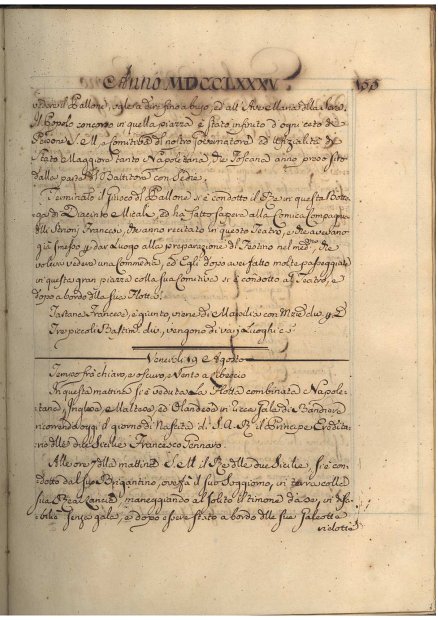 Anno MDCCLXXXV. 155
vedere il Pallone, e gl'era dire sino a bujo, ed all'Ave Maria della Sera.
Il Popolo concorso in quella piazza è stato infinito d'ogni ceto di
Persone S. M. e Comitiva il nostro Governatore ed Ufizialità di
Stato Maggiore tanto Napoletana che Toscana anno preso sito
dalla parte del Battitore con Sedie.
Terminato il Giuoco di Pallone si è condotto il Re in questa Botte
ga di Diacinto Micali, ed ha fatto sapere alla Comica Compagnia
di Istrioni Francesi, che anno recitato in questo Teatro, e che avevano
già smesso p. dar luogo alla preparazione di Festino nel med.mo, che
voleva vedere una Commedia, ed Egli dopo aver fatto molte passeggiate
in questa gran piazza colla sua Comitiva si è condotto al Teatro, e
dopo a bordo della sua Flotta.
Tartana Francese, è giunta, viene di Marsilia con Merc. div. p.
Tre piccoli Bastim. div. vengono di varj Luoghi
Venerdì 19 Agosto
Tempo fra chiaro, e oscuro, e Vento a Libeccio
In questa mattina si è veduta la Flotta combinata Napole-
tana, Inglese, e Maltese, ed Olandese in ricca Gala di Bandiere
ricorrendo oggi il giorno di Nascita di S. A. R. il Principe Eredita
rio delle due Sicilie Francesco Gennaro.
Alle ore 7 della mattina S. M. il Re delle due Sicilie, si è con
dotto dal suo Brigantino, ove fa il suo Soggiorno, in terra colle
sue Real Lancie maneggiando al solito il timone da se, in abito
civile senza gale, e dopo essere stato a bordo delle sue Galeotte
ridotte